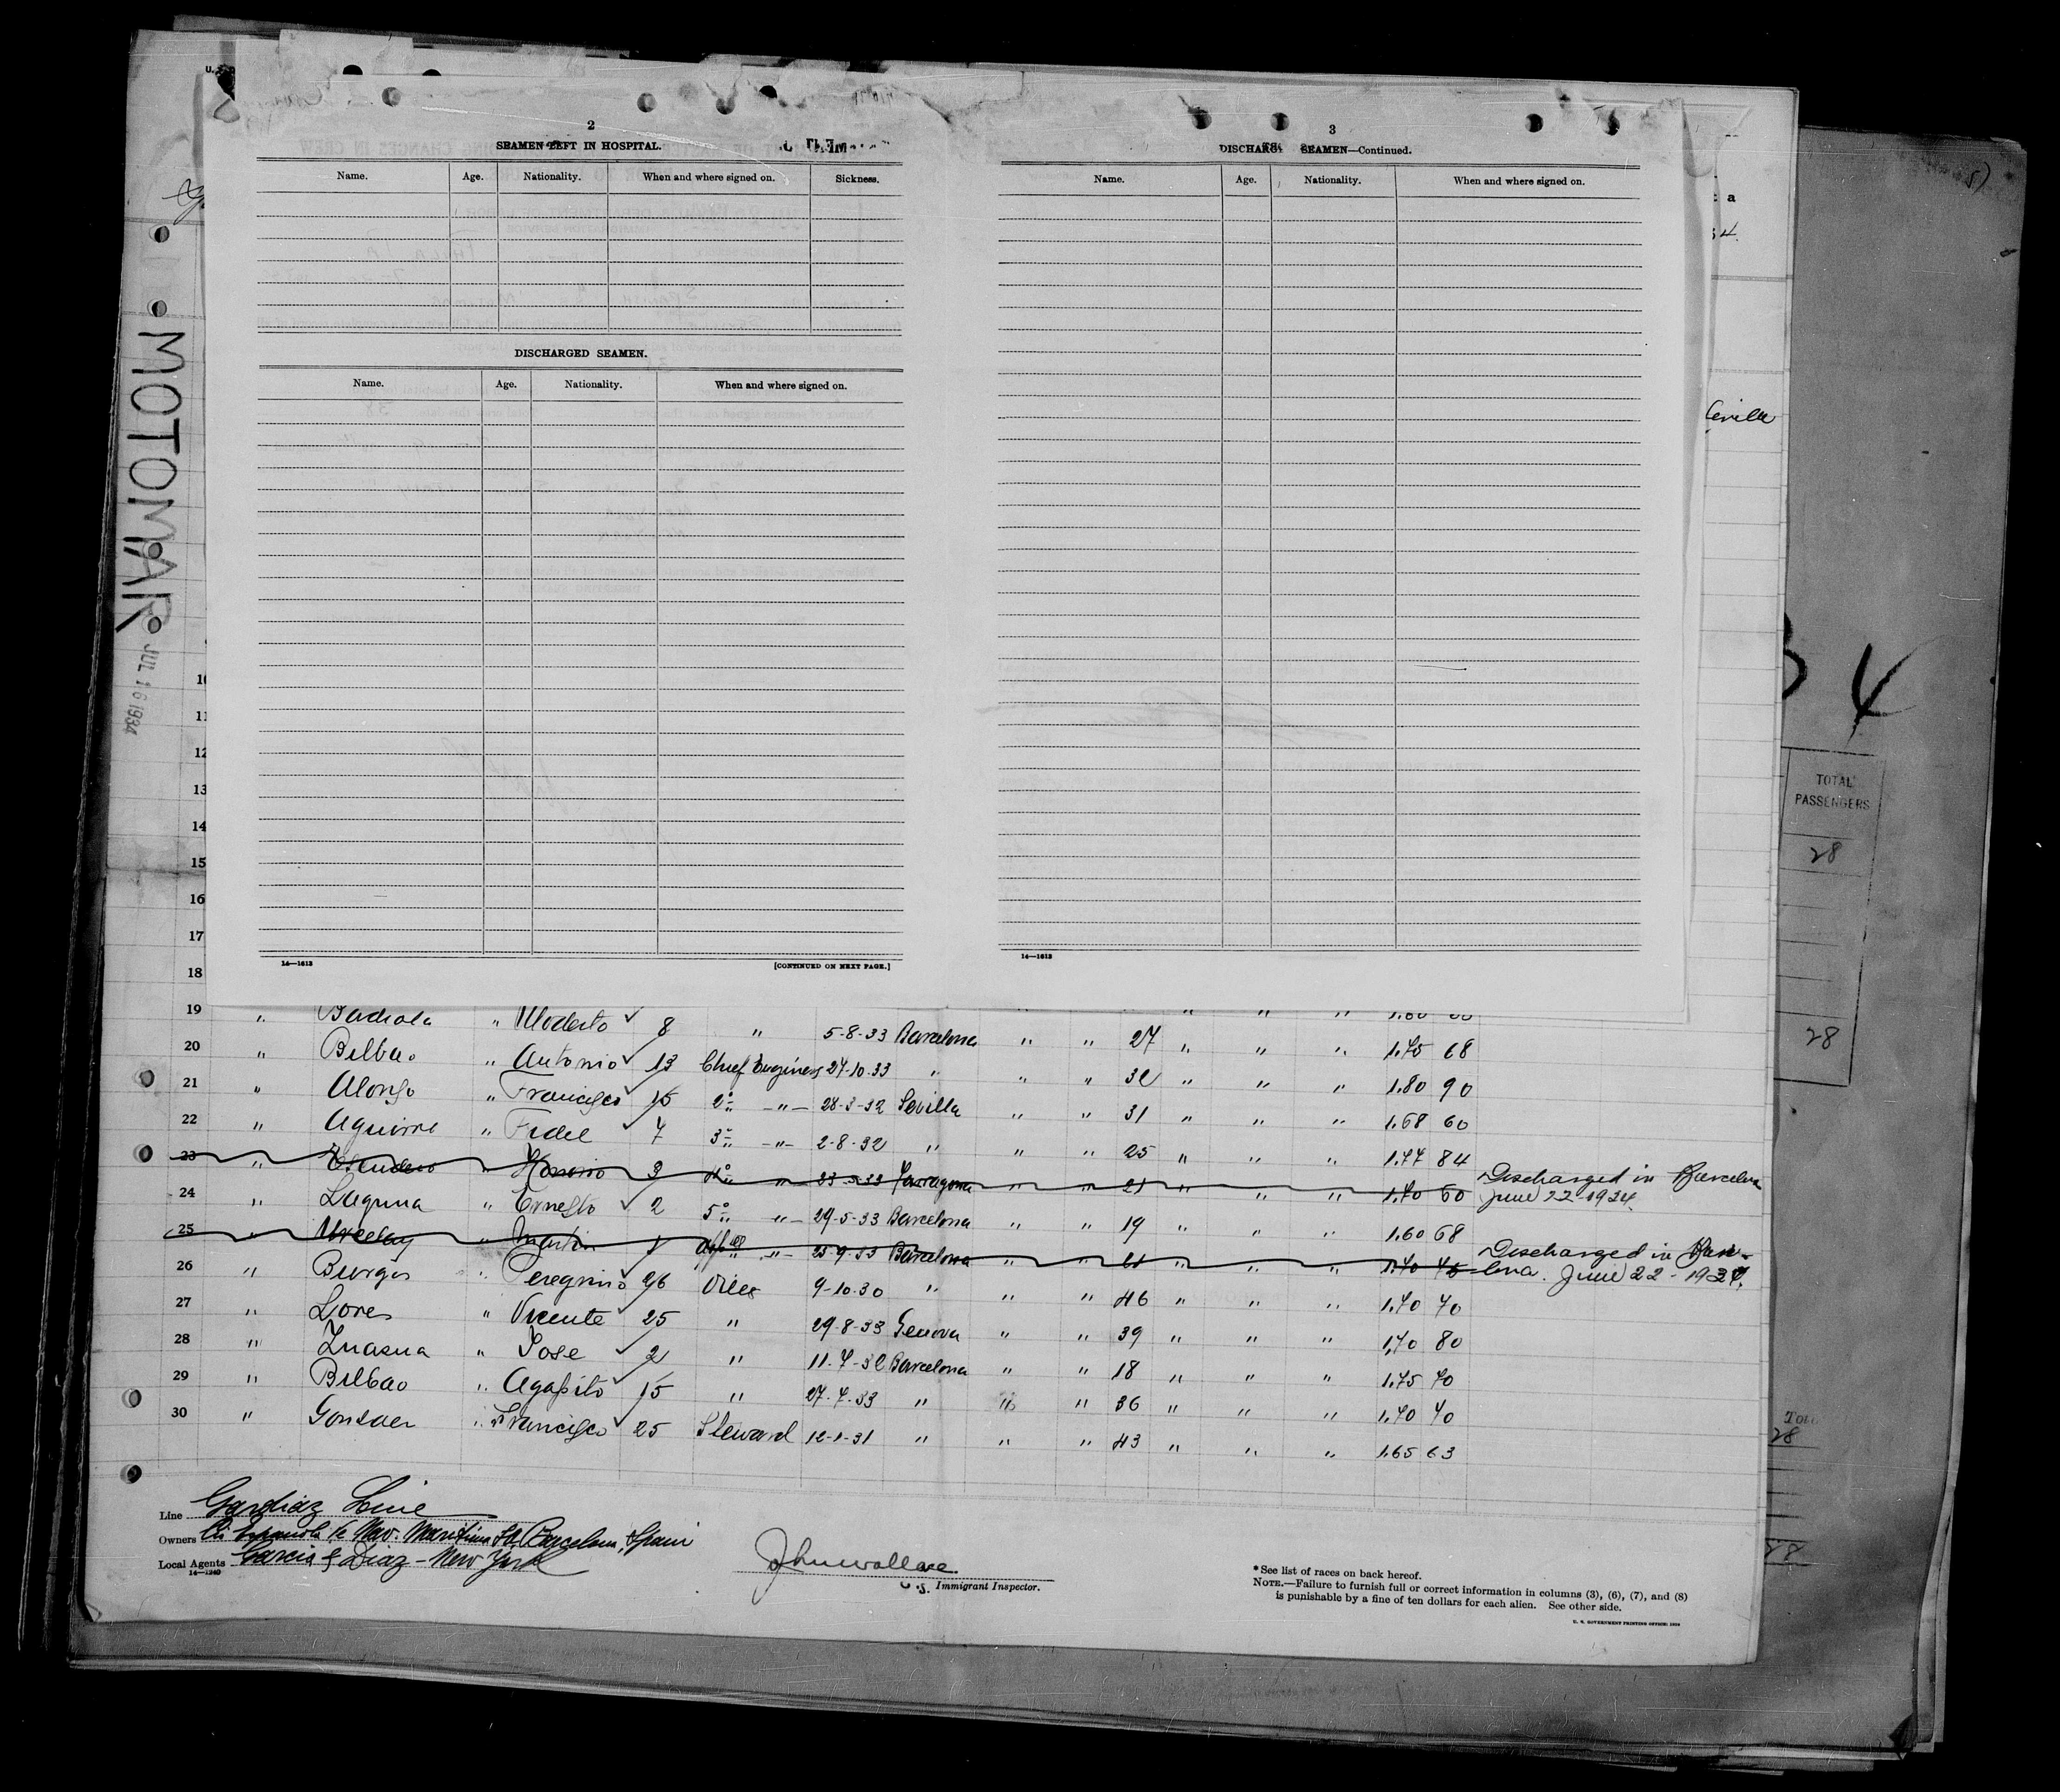 MOTOMAR
JUL 16 1934
2
SEAMEN LEFT IN HOSPITAL.
Name. Age. Nationality. When and where signed on. Sickness.
DISCHARGED SEAMEN.
Name. Age. Nationality. When and where signed on.
14—1613 [CONTINUED ON NEXT PAGE.]
3
SEAMEN—Continued.
Name. Age. Nationality. When and where signed on.
14—1613
TOTAL PASSENGERS
28
28
10
11
12
13
14
15
16
17
18
19 " Badiola " Modesto ✓ 8 " 5-8-33 Barcelona " " 27 " " " 1.75 68
20 " Bilbao " Antonio ✓ 13 Chief Engineer 27-10-33 " " " 32 " " " 1.80 90
21 " Alonso " Francisco ✓ 15 2º " 28-3-32 Sevilla " " 31 " " " 1.68 60
22 " Aguirre " Fidel ✓ 7 3º " 2-8-32 " " " 25 " " " 1.77 84
23 " 3 4º " Tarragona " " 21 " " " 1.70 60 Discharged in Barcelona
June 22-1934.
24 " Laguna " Ernesto ✓ 2 5º " 29-5-33 Barcelona " " 19 " " " 1.60 68
25 " " Martin " 25-9-33 Barcelona " " " " " 1.70 75 Discharged in Barce-
lona. June 22-1934.
26 " Burgos " Peregrino ✓ 26 Oiler 9-10-30 " " " 46 " " " 1.70 70
27 " Lores " Vicente ✓ 25 " 29-8-33 Genova " " 39 " " " 1.70 80
28 " " Jose ✓ 2 " 11-7-32 Barcelona " " 18 " " " 1.75 70
29 " Bilbao " Agapito ✓ 15 " 27-7-33 " " " 36 " " " 1.70 70
30 " " Francisco ✓ 25 Steward 12-1-31 " " " 43 " " " 1.65 63
Line Gardiaz Line
Owners Cia Española de Nav. Maritima S.A. Barcelona, Spain
Local Agents Garcia & Diaz - New York
14—1240
John Wallace
U.S. Immigrant Inspector.
*See list of races on back hereof.
NOTE.—Failure to furnish full or correct information in columns (3), (6), (7), and (8)
is punishable by a fine of ten dollars for each alien. See other side.
U. S. GOVERNMENT PRINTING OFFICE: